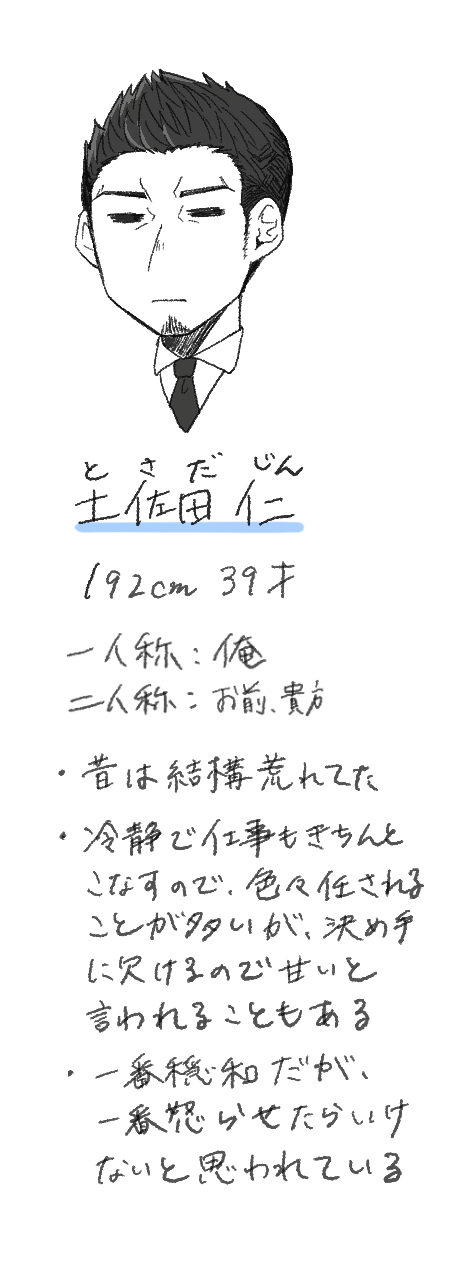 とさだ じん
土佐田 仁
192cm 39才
一人称：俺
二人称：お前、貴方
・昔は結構荒れてた
・冷静で仕事もきちんと
こなすので、色々任される
ことが多いが、決め手
に欠けるので甘いと
言われることもある
・一番穏和だが、
一番怒らせたらいけ
ないと思われている